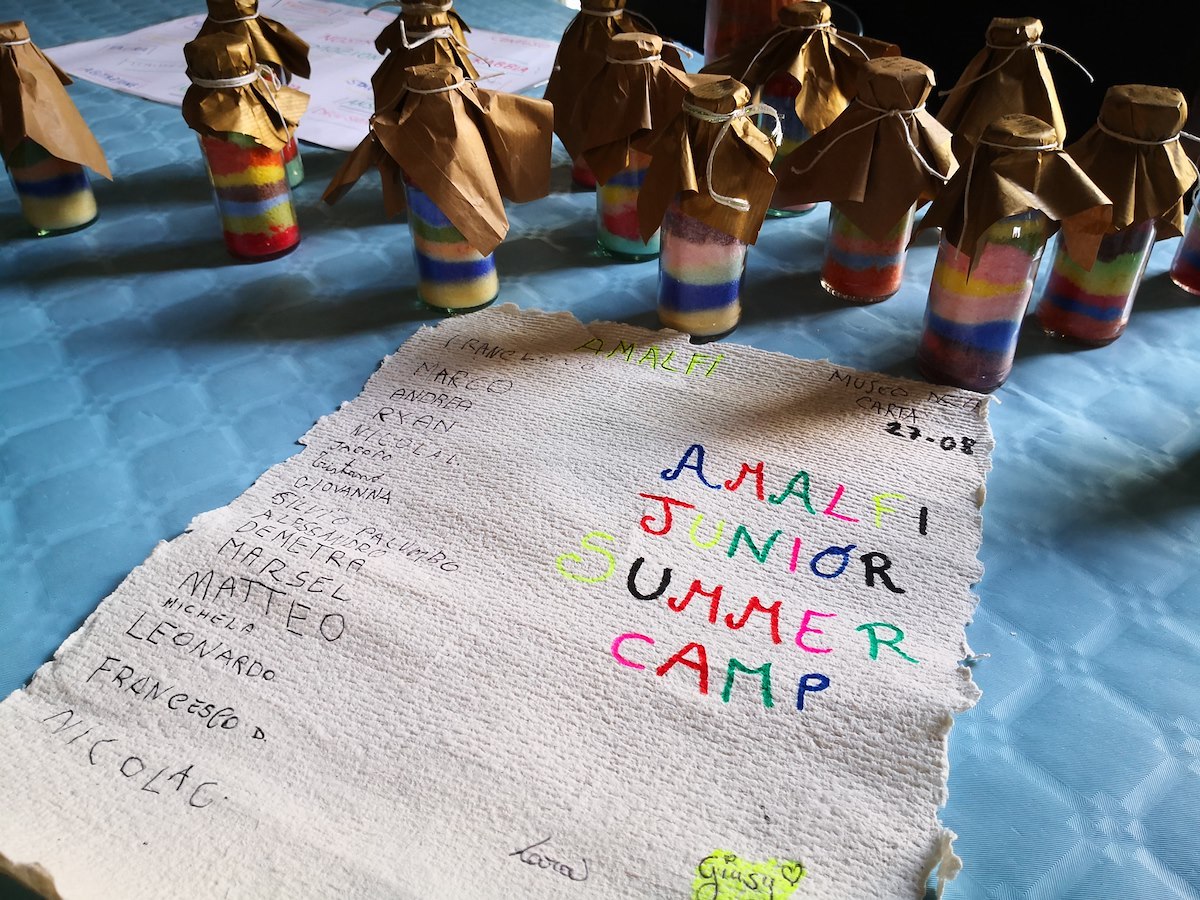 AMALFI
MUSEO DELLA
CARTA
27-08
AMALFI
JUNIOR
SUMMER
CAMP
MARCO
ANDREA
RYAN
NICOLA L.
JACOPO
Gaetano
GIOVANNA
SILVIO PALUMBO
ALESSANDRO
DEMETRA
MARSEL
MATTEO
MICHELA
LEONARDO
FRANCESCO D.
NICOLA C.
Lara
Giusy